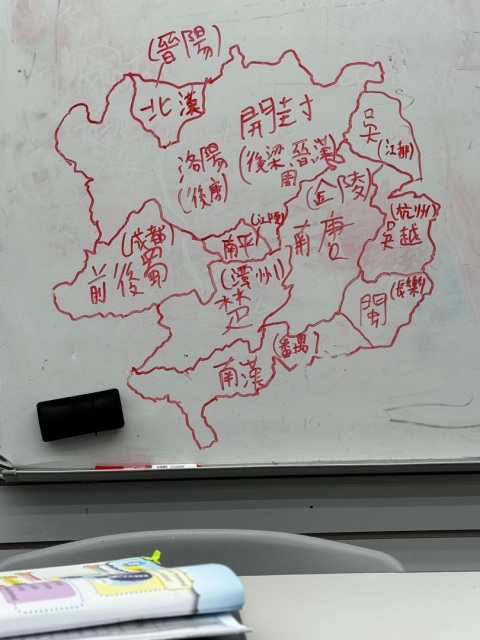 (晉陽)
北漢
開封
(後梁 晉漢
周
洛陽
(後唐)
吳
(江都)
(金陵)
南唐
(杭州)
吳越
(成都)
前後蜀
南平
(江陵)
(潭州)
楚
閩
(長樂)
(番禺)
南漢